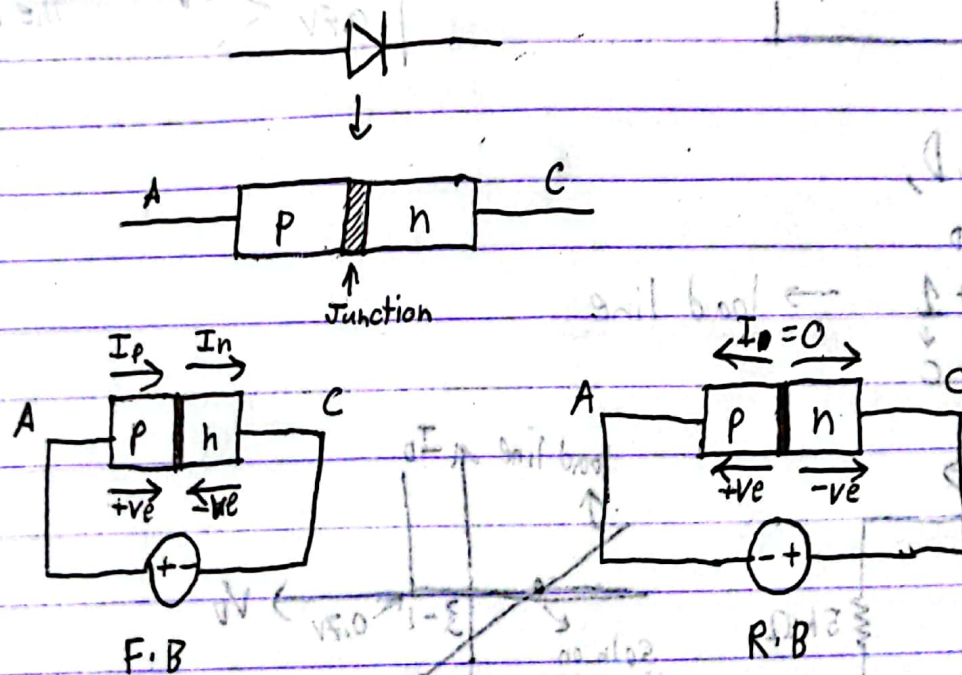 A
C
p
n
Junction
Ip In
A
C
p n
+ve -ve
+ -
F.B
I = 0
A
C
p n
+ve -ve
- +
R.B